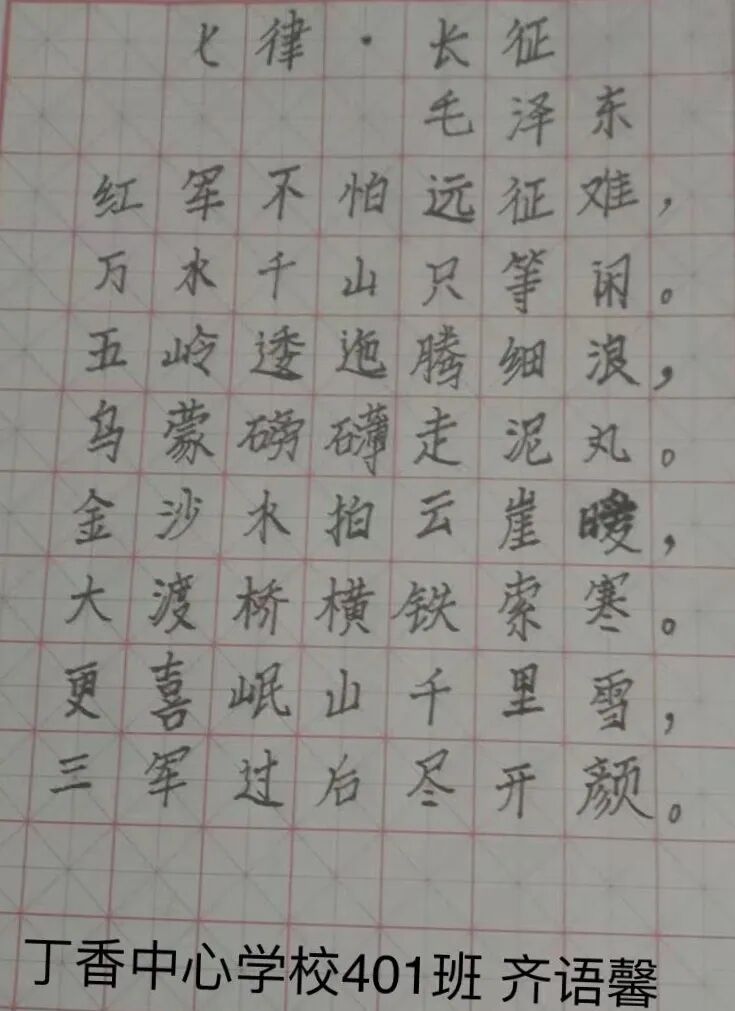 七律·长征
毛泽东
红军不怕远征难，
万水千山只等闲。
五岭逶迤腾细浪，
乌蒙磅礴走泥丸。
金沙水拍云崖暖，
大渡桥横铁索寒。
更喜岷山千里雪，
三军过后尽开颜。
丁香中心学校401班 齐语馨